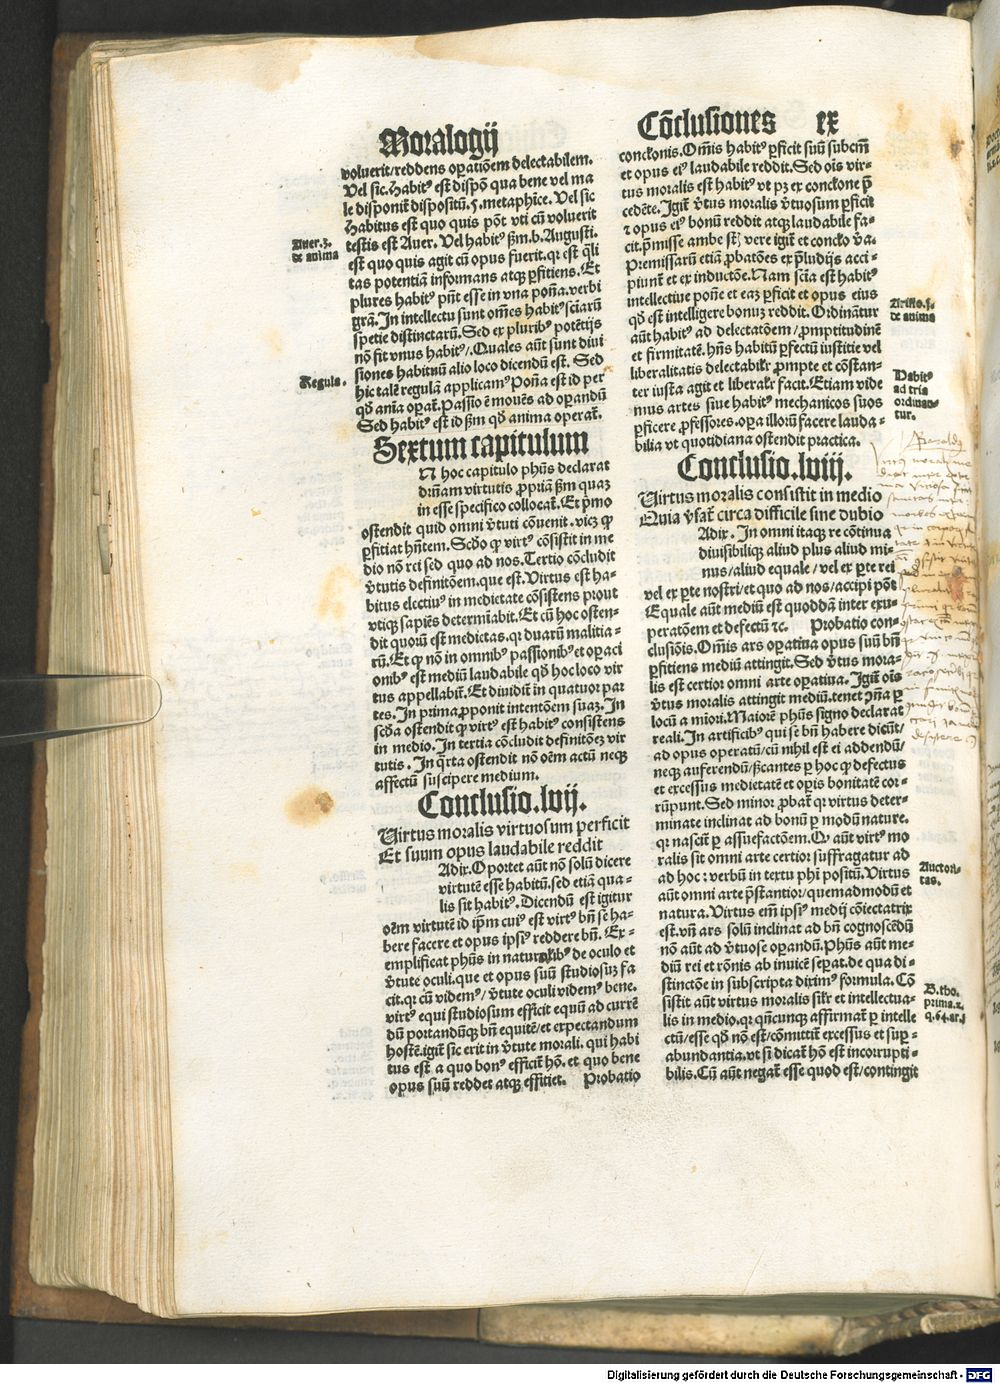 Moralogij
voluerit/reddens oꝑatiõem delectabilem.
Vel sic. Habitꝰ est dispõ qua bene vel ma
le disponit̃ dispositũ.5.metaphice. Vel sic
Habitus est quo quis põt vti cũ voluerit
testis est Auer. Vel habitꝰ ẜm.b. Augusti.
est quo quis agit cũ opus fuerit. qr est q̃li
tas potentiã informans atqꝫ ꝑfitiens. Et
plures habitꝰ pñt esse in vna poña. verbi
grã. In intellectu sunt om̃es habitꝰ sciarũ
spetie distinctarũ. Sed ex pluribꝰ potẽtijs
nõ fit vnus habitꝰ/. Quales aũt sunt diui
siones habituũ alio loco dicendũ est. Sed
hic talẽ regulã applicamꝰ Poña est id per
qḋ aĩa oꝑat̃. Passio ẽ mouẽs ad oꝑandũ
Sed habitꝰ est id ẜm qḋ anima operat̃.
Auer.3.
de anima
Regula.
Sextum capitulum
N hoc capitulo phũs declarat
drñam virtutis ꝓpriã ẜm quaꝫ
in esse specifico collocat̃. Et pͥmo
ostendit quid omni v̓tuti cõuenit. vicꝫ ꝙ
ꝑfitiat hñtem. Scḋo ꝙ virtꝰ cõsistit in me
dio nõ rei sed quo ad nos. Tertio cõcludit
v̓tutis definitõem. que est. Virtus est ha-
bitus electiuꝰ in medietate cõsistens prout
vtiqꝫ sapiẽs determiabit. Et cũ hoc osten-
dit quorũ est medietas. qr duarũ malitia-
rũ. Et ꝙ nõ in omnibꝰ passionibꝰ et oꝑaci
onibꝰ est mediũ laudabile qḋ hoc loco vir
tus appellabit̃. Et diuidit̃ in quatuor par
tes. In prima ꝓponit intentõem suaꝫ. In
scḋa ostendit ꝙ virtꝰ est habitꝰ consistens
in medio. In tertia cõcludit definitõeꝫ vir
tutis. In q̃rta ostendit nõ oẽm actũ neqꝫ
affectũ suscipere medium.
Conclusio. lvij.
Virtus moralis virtuosum perficit
Et suum opus laudabile reddit
Adix. Oportet aũt nõ solũ dicere
virtutẽ esse habitũ. sed etiã qua-
lis sit habitꝰ. Dicendũ est igitur
oẽm virtutẽ id ip̃m cuiꝰ est virtꝰ bñ se ha-
bere facere et opus ipsiꝰ reddere bñ. Ex-
emplificat phũs in naturalibꝰ de oculo et
v̓tute oculi. que et opus suũ studiosuꝫ fa
cit. qr cũ videmꝰ/ v̓tute oculi videmꝰ bene.
virtꝰ equi studiosum efficit equũ ad currẽ
dũ portandũqꝫ bñ equitẽ/ et expectandum
hostẽ. igit̃ sic erit in v̓tute morali. qui habi
tus est a quo bonꝰ efficit̃ hõ. et quo bene
opus suũ reddet atqꝫ effitiet. Probatio
Cõclusiones ex
conclonis. Om̃is habitꝰ ꝑficit suũ subcm̃
et opus eiꝰ laudabile reddit. Sed ois vir-
tus moralis est habitꝰ vt pꝫ ex conclone p̃
cedẽte. Igit̃ v̓tus moralis v̓tuosum ꝑficit
⁊ opus eiꝰ bonũ reddit atqꝫ laudabile fa-
cit. p̃misse ambe st̃/ vere igit̃ et conclo v̓a.
Premissarũ etiã ꝓbatões ex p̃ludijs acci-
piunt̃ et ex inductõe. Nam scĩa est habitꝰ
intellectiue poñe et eaꝫ ꝑficit et opus eius
qḋ est intelligere bonuꝫ reddit. Ordinãtur
aũt habitꝰ ad delectatõem/ ꝓmptitudinẽ
et firmitatẽ. hñs habitũ ꝑfectũ iustitie vel
liberalitatis delectabilr̃ ꝓmpte et cõstan-
ter iusta agit et liberalr̃ facit. Etiam vide
mus artes siue habitꝰ mechanicos suos
ꝑficere ꝓfessores. oꝑa illorũ facere lauda-
bilia vt quotidiana ostendit practica.
Aristo.3.
de anima
Habitꝰ
ad tria
ordinan-
tur.
Conclusio. lviij.
Virtus moralis consistit in medio
Quia v̓sat̃ circa difficile sine dubio
Adix. In omni itaqꝫ re cõtinua
diuisibiliqꝫ aliud plus aliud mi-
nus/ aliud equale/ vel ex ꝑte rei
vel ex ꝑte nostri/ et quo ad nos/ accipi põt
Equale aũt mediũ est quoddã inter exu-
peratõem et defectũ ⁊c. Probatio con-
clusiõis. Om̃is ars oꝑatiua opus suũ bñ
ꝑfitiens mediũ attingit. Sed v̓tus mora-
lis est certior omni arte oꝑatiua. Igit̃ ois
v̓tus moralis attingit mediũ. tenet ꝯña ꝑ
locũ a miori. Maiorẽ phũs signo declarat
reali. In artificibꝰ qui se bñ habere dicũt̃/
ad opus operatũ/ cũ nihil est ei addendũ/
neqꝫ auferendũ/ ẜcantes ꝑ hoc ꝙ defectus
et excessus medietatẽ et oꝑis bonitatẽ cor-
rũpunt. Sed minor ꝓbat̃ qr virtus deter-
minate inclinat ad bonũ ꝑ modũ nature.
qr nascit̃ ꝑ assuefactõem. Qꝙ aũt virtꝰ mo
ralis sit omni arte certior suffragatur ad
ad hoc: verbũ in textu phi positũ. Virtus
aũt omni arte p̃stantior/ quemadmodũ et
natura. Virtus em̃ ipsiꝰ medij cõiectatrix
est. vñ ars solũ inclinat ad bñ cognoscẽdũ
nõ aũt ad v̓tuose oꝑandũ. Phũs aũt me-
diũ rei et rõnis ab inuicẽ seꝑat. de qua di-
stinctõe in subscripta dirimꝰ formula. Cõ
sistit aũt virtus moralis silr̃ et intellectua-
lis in medio. qr qñcunqꝫ affirmat̃ ꝑ intelle
ctũ/ esse qḋ nõ est/ cõmittit̃ excessus et suꝑ-
abundantia. vt si dicat̃ hõ est incorrupti-
bilis. Cũ aũt negat̃ esse quod est/ contingit
Auctori-
tas.
B. tho.
prima.2.
q.64.ar.3
Digitalisierung gefördert durch die Deutsche Forschungsgemeinschaft - DFG